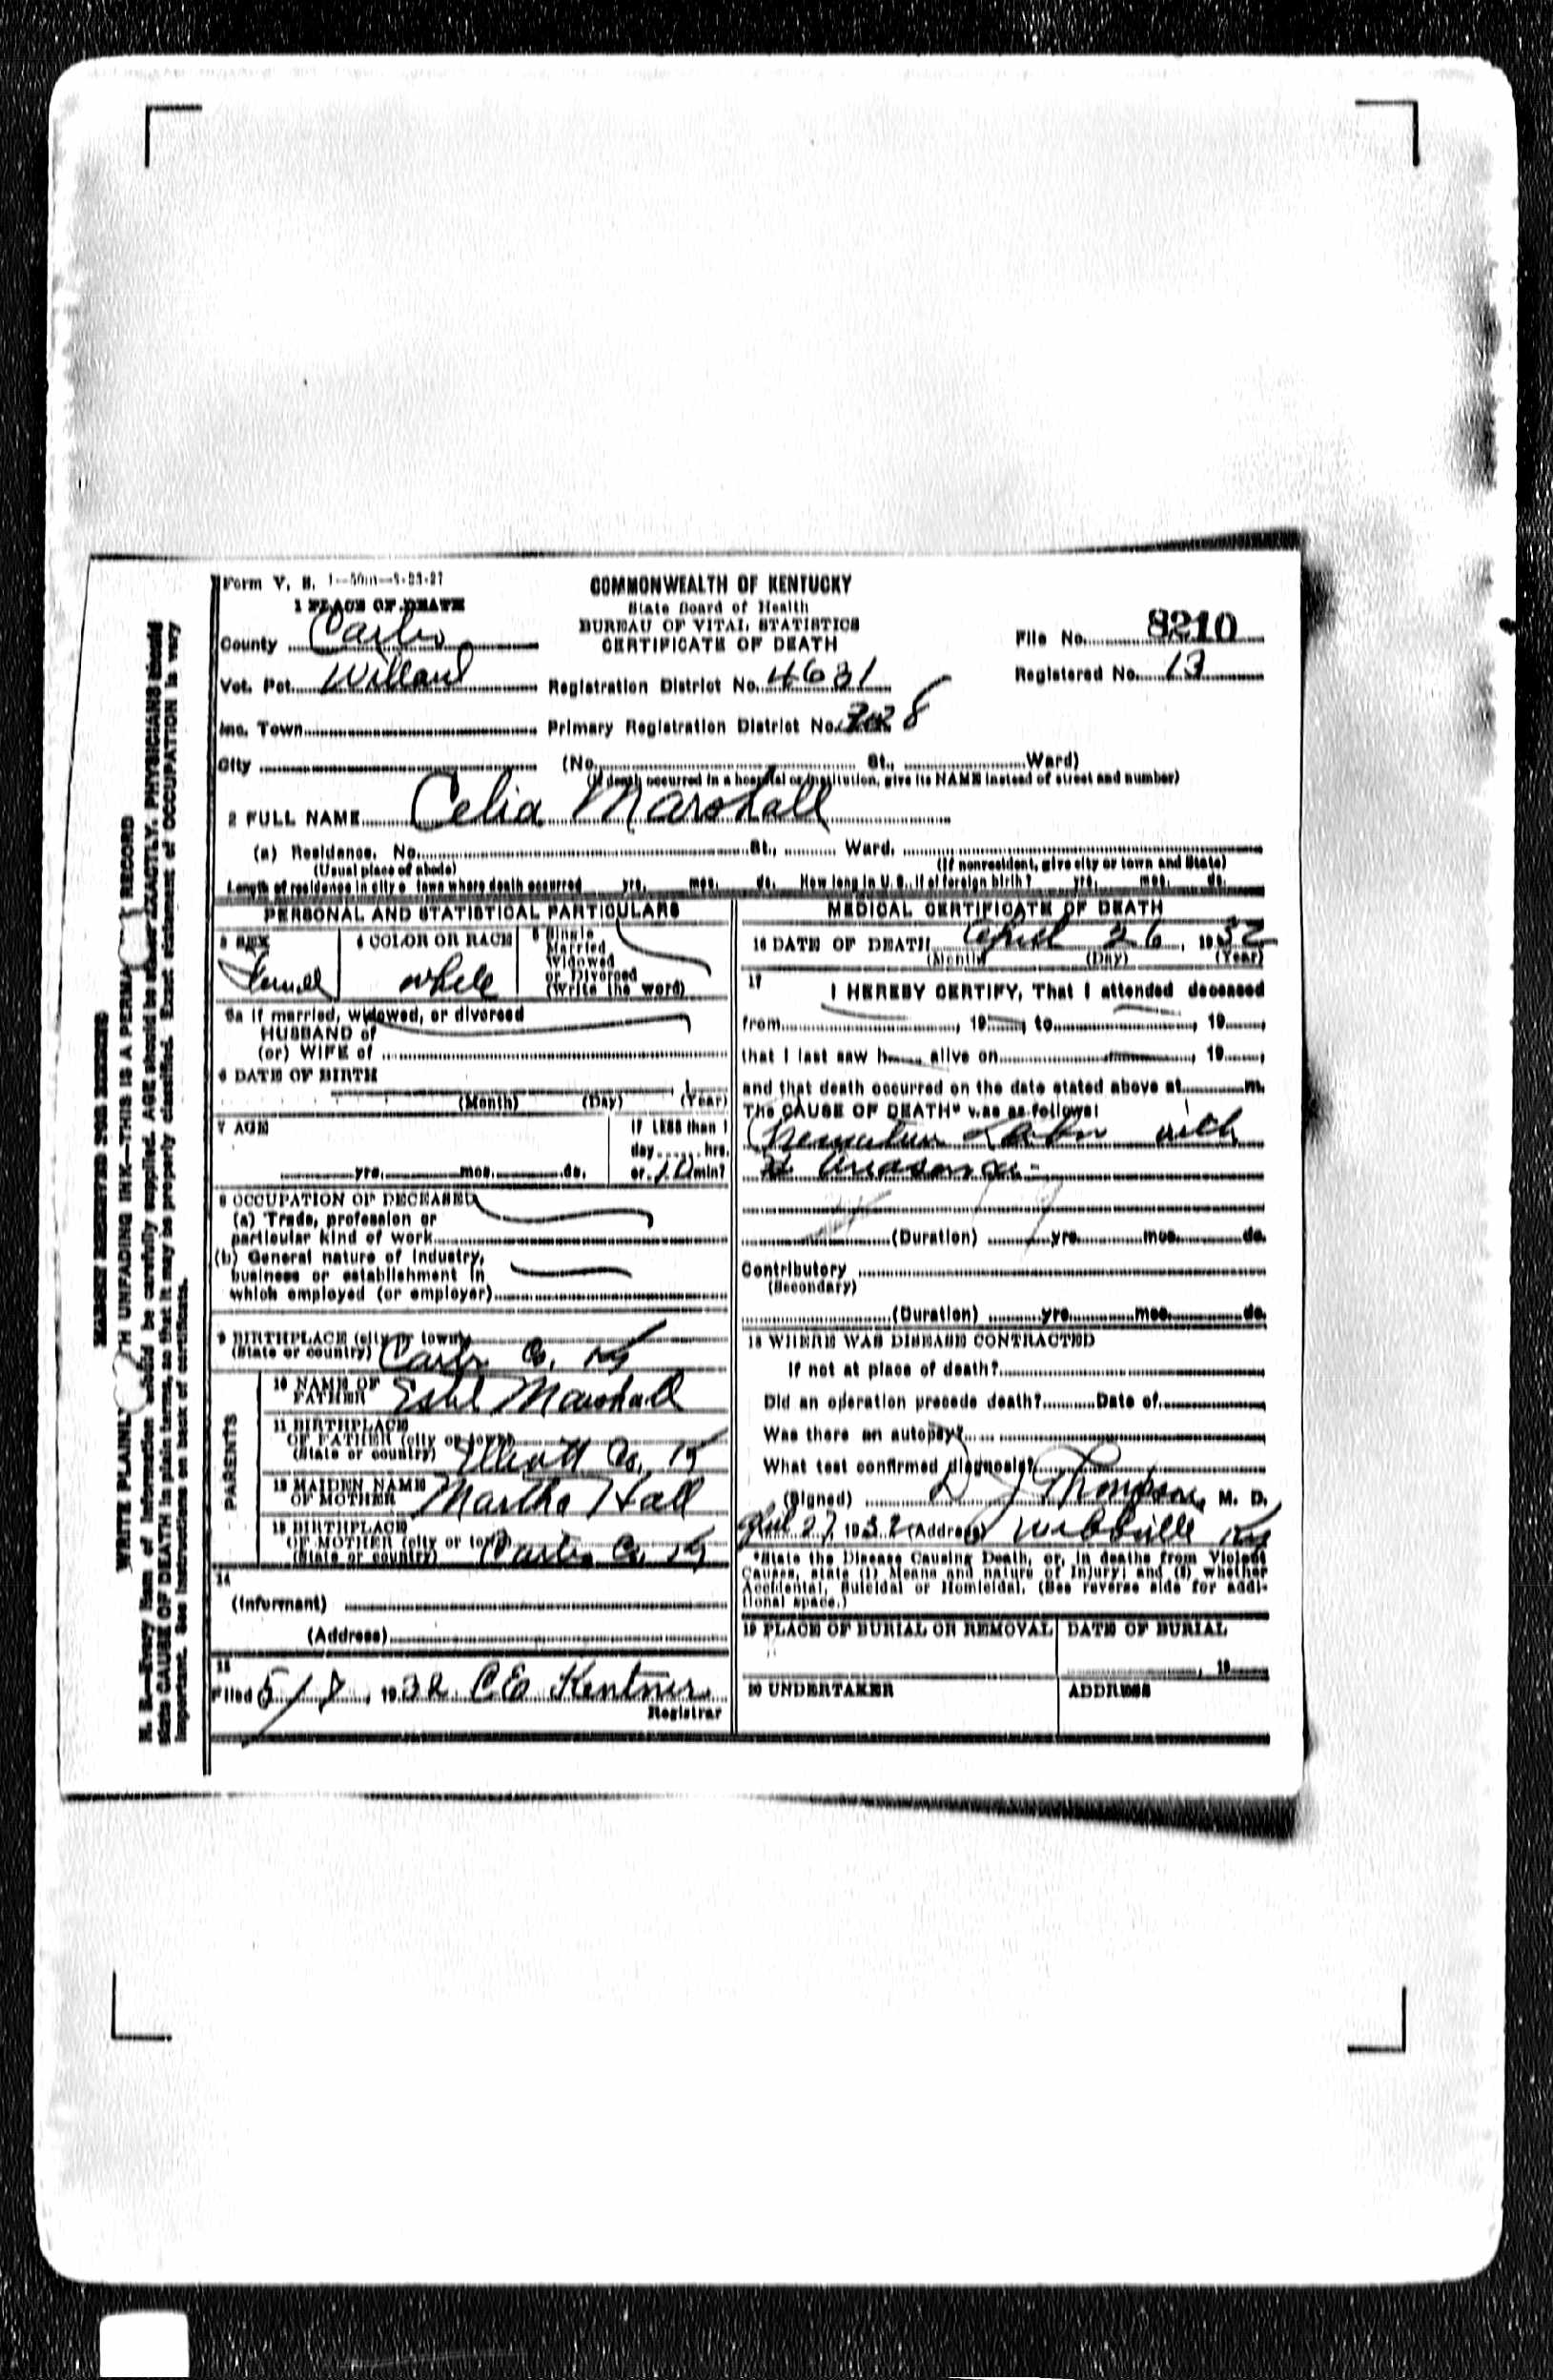 MARGIN RESERVED FOR BINDING
WRITE PLAINL TH UNFADING INK—THIS IS A PERMA RECORD
N. B.—Every item of information should be carefully supplied. AGE should be stated EXACTLY. PHYSICIANS should
state CAUSE OF DEATH in plain terms, so that it may be properly classified. Exact statement of OCCUPATION is very
important. See instructions on back of certificate.
Form V. S. 1—50m—5-23-27
COMMONWEALTH OF KENTUCKY
State Board of Health
BUREAU OF VITAL STATISTICS
CERTIFICATE OF DEATH
1 PLACE OF DEATH
County Carter
File No. 8210
Vot. Pct. Willard Registration District No. 4631 Registered No. 13
Inc. Town Primary Registration District No. 8
City (No. St., Ward)
(If death occurred in a hospital or institution, give its NAME instead of street and number)
2 FULL NAME Celia Marshall
(a) Residence. No. St., Ward.
(Usual place of abode) (If nonresident, give city or town and State)
Length of residence in city or town where death occurred yrs. mos. ds. How long in U. S., if of foreign birth? yrs. mos. ds.
PERSONAL AND STATISTICAL PARTICULARS
3 SEX 4 COLOR OR RACE 5 Single
Married
Widowed
or Divorced
(Write the word)
Femal White
5a If married, widowed, or divorced
HUSBAND of
(or) WIFE of
6 DATE OF BIRTH
(Month) (Day) (Year)
7 AGE If LESS than 1
day hrs.
yrs. mos. ds. or 10 min?
8 OCCUPATION OF DECEASED
(a) Trade, profession or
particular kind of work
(b) General nature of industry,
business or establishment in
which employed (or employer)
9 BIRTHPLACE (city or town)
(State or country) Carter Co. Ky
PARENTS
10 NAME OF
FATHER Marshall
11 BIRTHPLACE
OF FATHER (city or town)
(State or country) Elliott Co. Ky
12 MAIDEN NAME
OF MOTHER Martha Hall
13 BIRTHPLACE
OF MOTHER (city or town)
(State or country) Carter Co. Ky
14
(Informant)
(Address)
15
Filed 5/7, 1932 CE Kentner
Registrar
MEDICAL CERTIFICATE OF DEATH
16 DATE OF DEATH April 26, 1932
(Month) (Day) (Year)
17
I HEREBY CERTIFY, That I attended deceased
from , 19 to , 19
that I last saw h alive on , 19
and that death occurred on the date stated above at m.
The CAUSE OF DEATH* was as follows:
Labor with
(Duration) yrs. mos. ds.
Contributory
(Secondary)
(Duration) yrs. mos. ds.
18 WHERE WAS DISEASE CONTRACTED
If not at place of death?
Did an operation precede death? Date of
Was there an autopsy?
What test confirmed diagnosis?
(Signed) D J Thompson, M. D.
27, 1932 (Address) Webbville Ky
*State the Disease Causing Death, or, in deaths from Violent
Causes, state (1) Means and nature of Injury; and (2) whether
Accidental, Suicidal or Homicidal. (See reverse side for addi-
tional space.)
19 PLACE OF BURIAL OR REMOVAL DATE OF BURIAL
, 19
20 UNDERTAKER ADDRESS